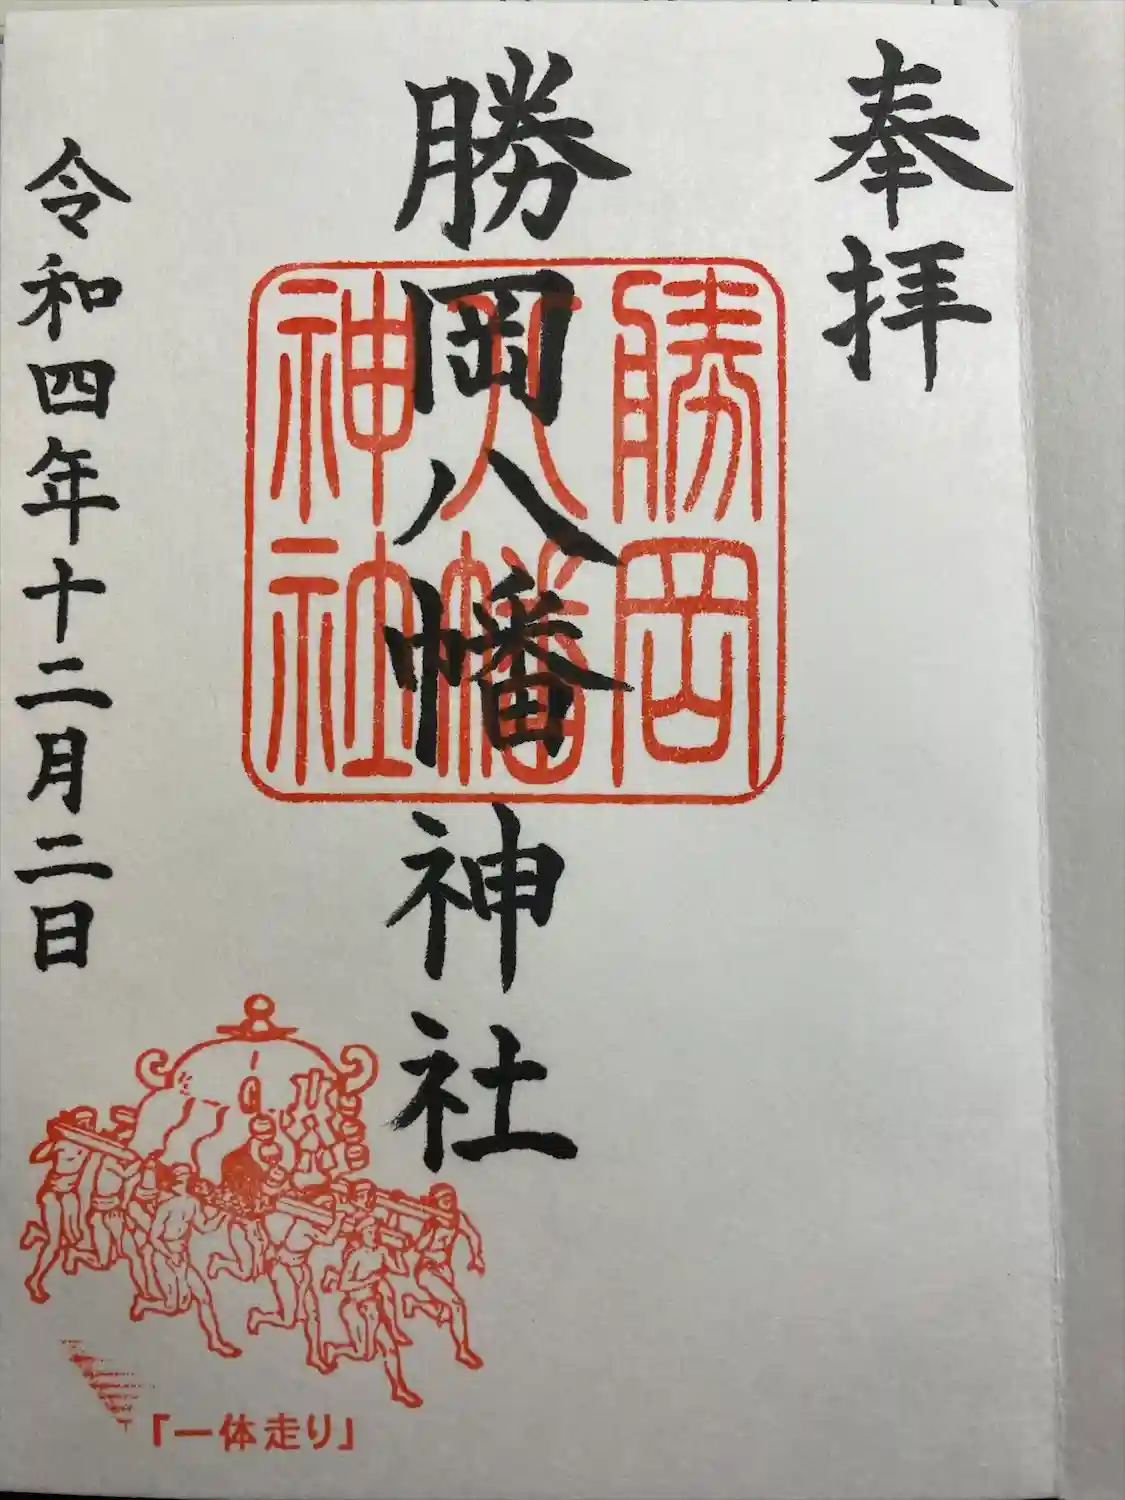 奉拝
勝岡八幡神社
勝岡
八幡
神社
令和四年十二月二日
「一体走り」